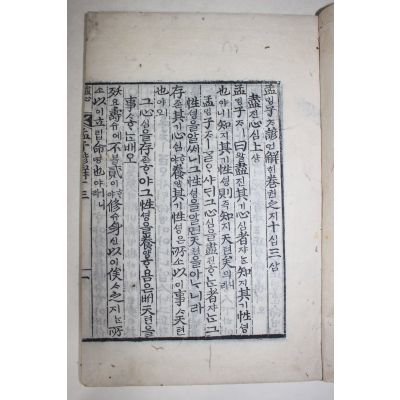 孟ᄆᆡᆼ子ᄌᆞ諺언解ᄒᆡ卷권之지十십三삼
盡진心심上샹
孟ᄆᆡᆼ子ᄌᆞㅣ曰왈盡진其기心심者쟈ᄂᆞᆫ知지其기性셩
也야ㅣ니知지其기性셩則즉知지天텬矣의니라
孟ᄆᆡᆼ子ᄌᆞㅣᄀᆞᆯᄋᆞ샤ᄃᆡ그心심을盡진ᄒᆞᄂᆞᆫ者쟈ᄂᆞᆫ그
性셩을알써니그性셩을알면天텬을아ᄂᆞ니라
存존其기心심ᄒᆞ야養양其기性셩은所소以이事ᄉᆞ天텬
也야ㅣ오
그心심을存존ᄒᆞ야그性셩을養양ᄒᆞ욤은ᄡᅥ天텬을
事ᄉᆞᄒᆞᄂᆞᆫ배오
殀요壽슈에不블貳이ᄒᆞ야修슈身신以이俟ᄉᆞ之지ᄂᆞᆫ所
소以이立립命명也야ㅣ니라
孟子諺解十三